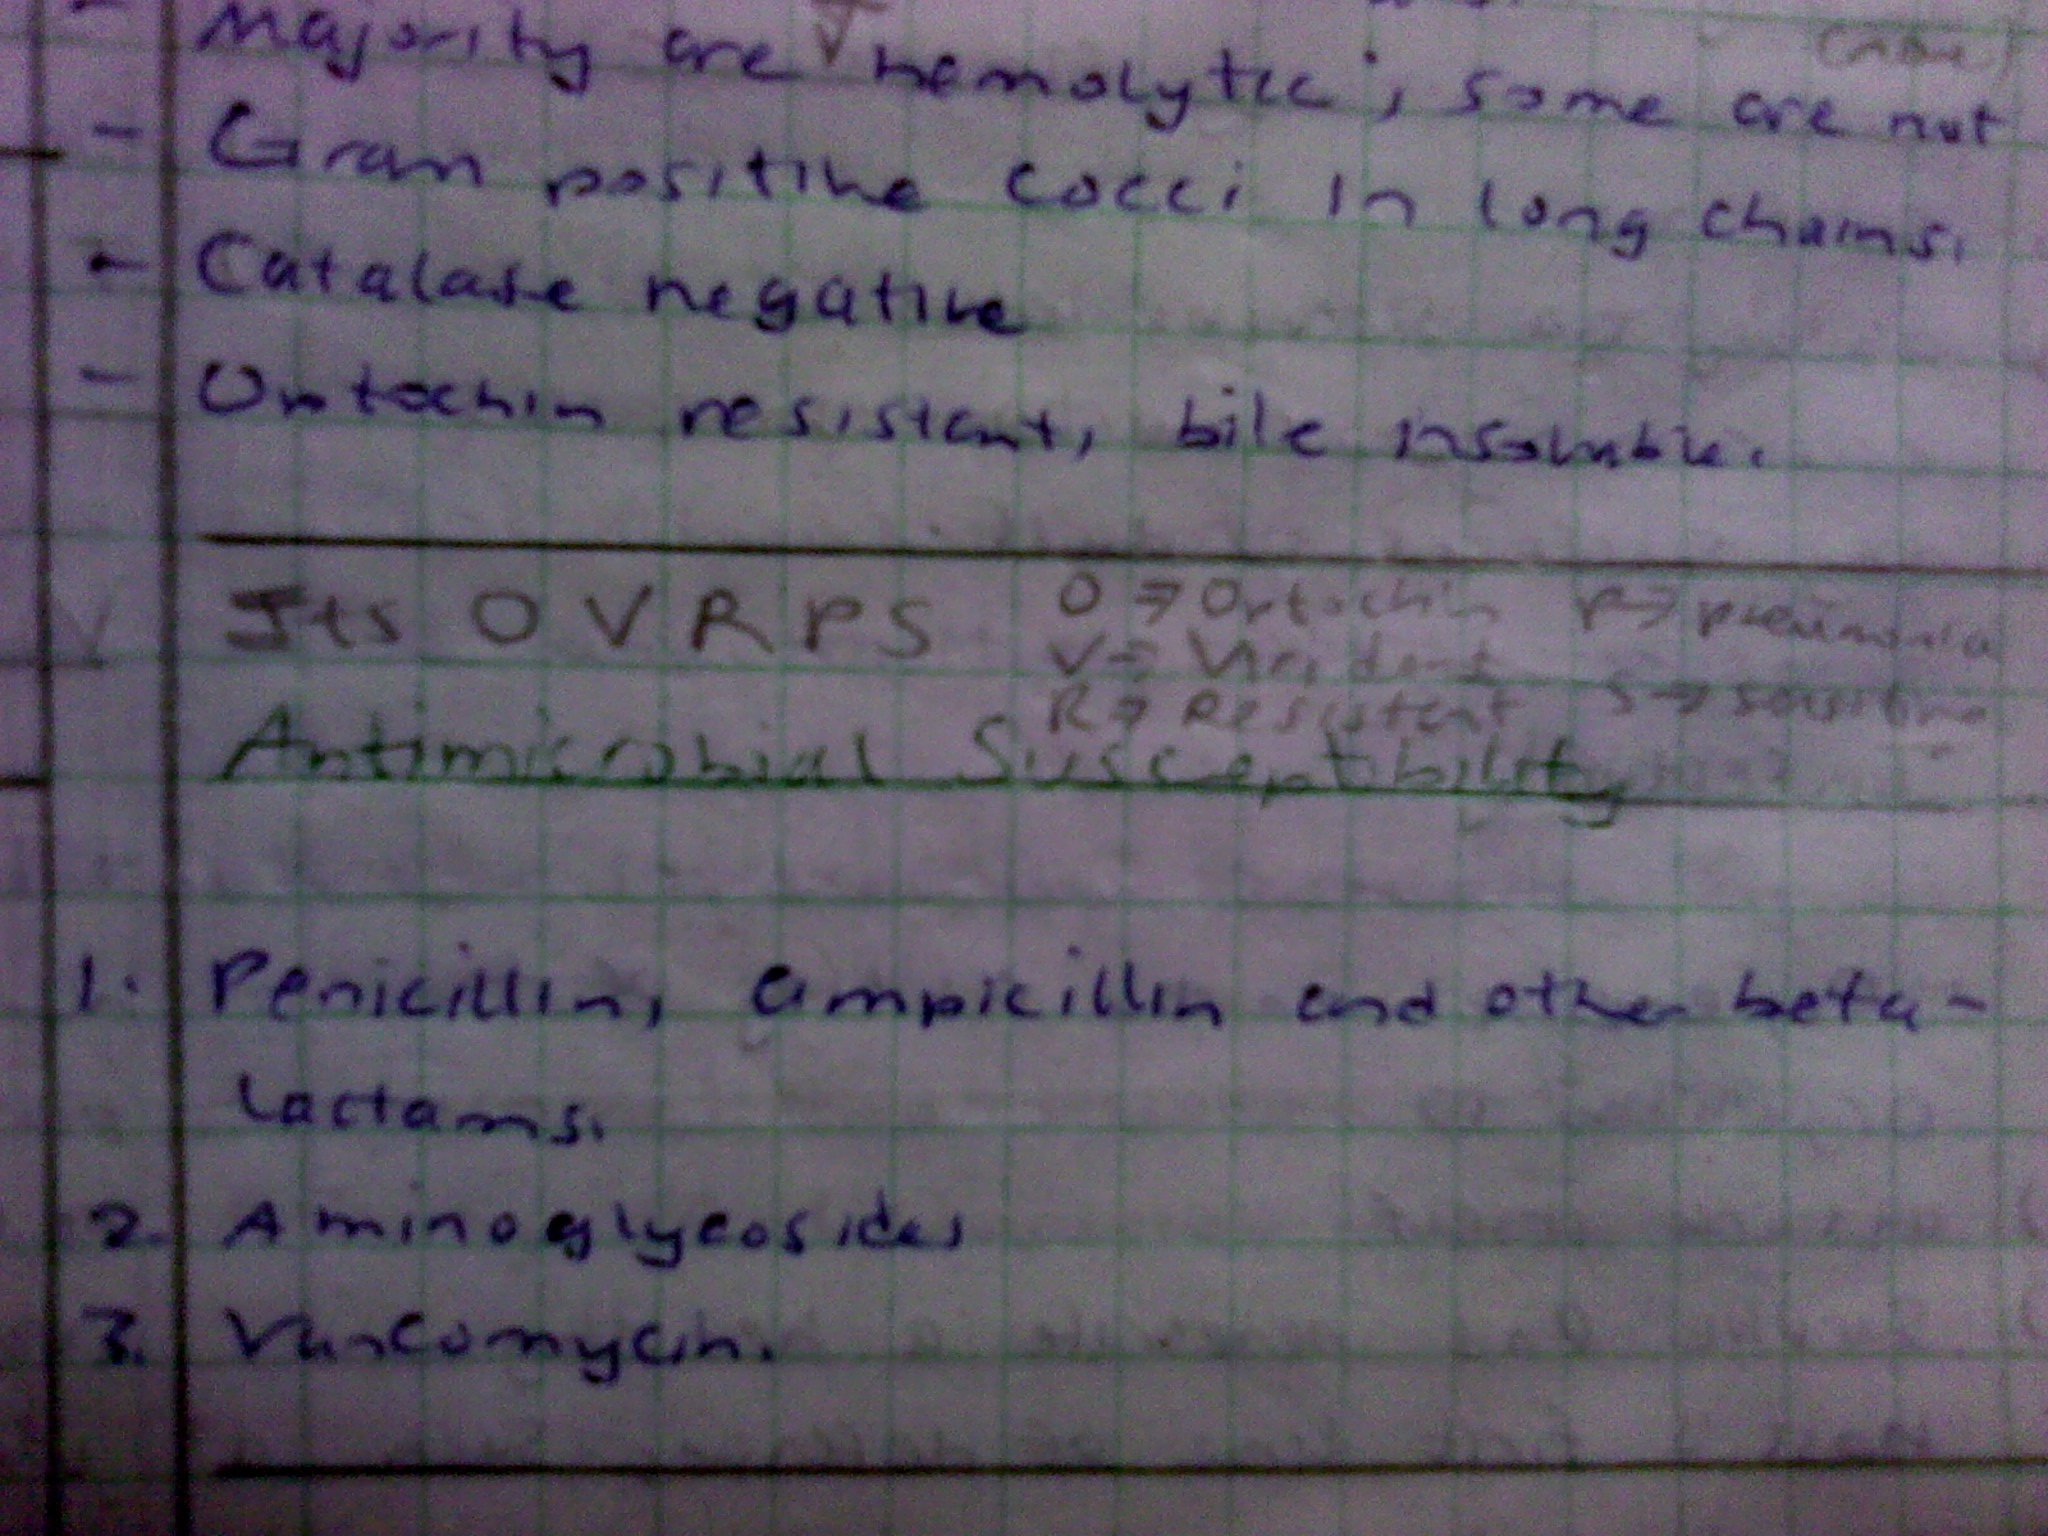 - Majority are hemolytic; some are not
- Gram positive cocci in long chains.
- Catalase negative
- Ontochin resistant, bile insoluble.
Its O V R P S
O ⇒ Ortochin P → pneumonia
V ⇒ Viridans
R ⇒ Resistent S → sensitive
Antimicrobial Susceptibility
1. Penicillin, ampicillin and other beta-
lactams.
2. Aminoglycosides
3. Vancomycin.